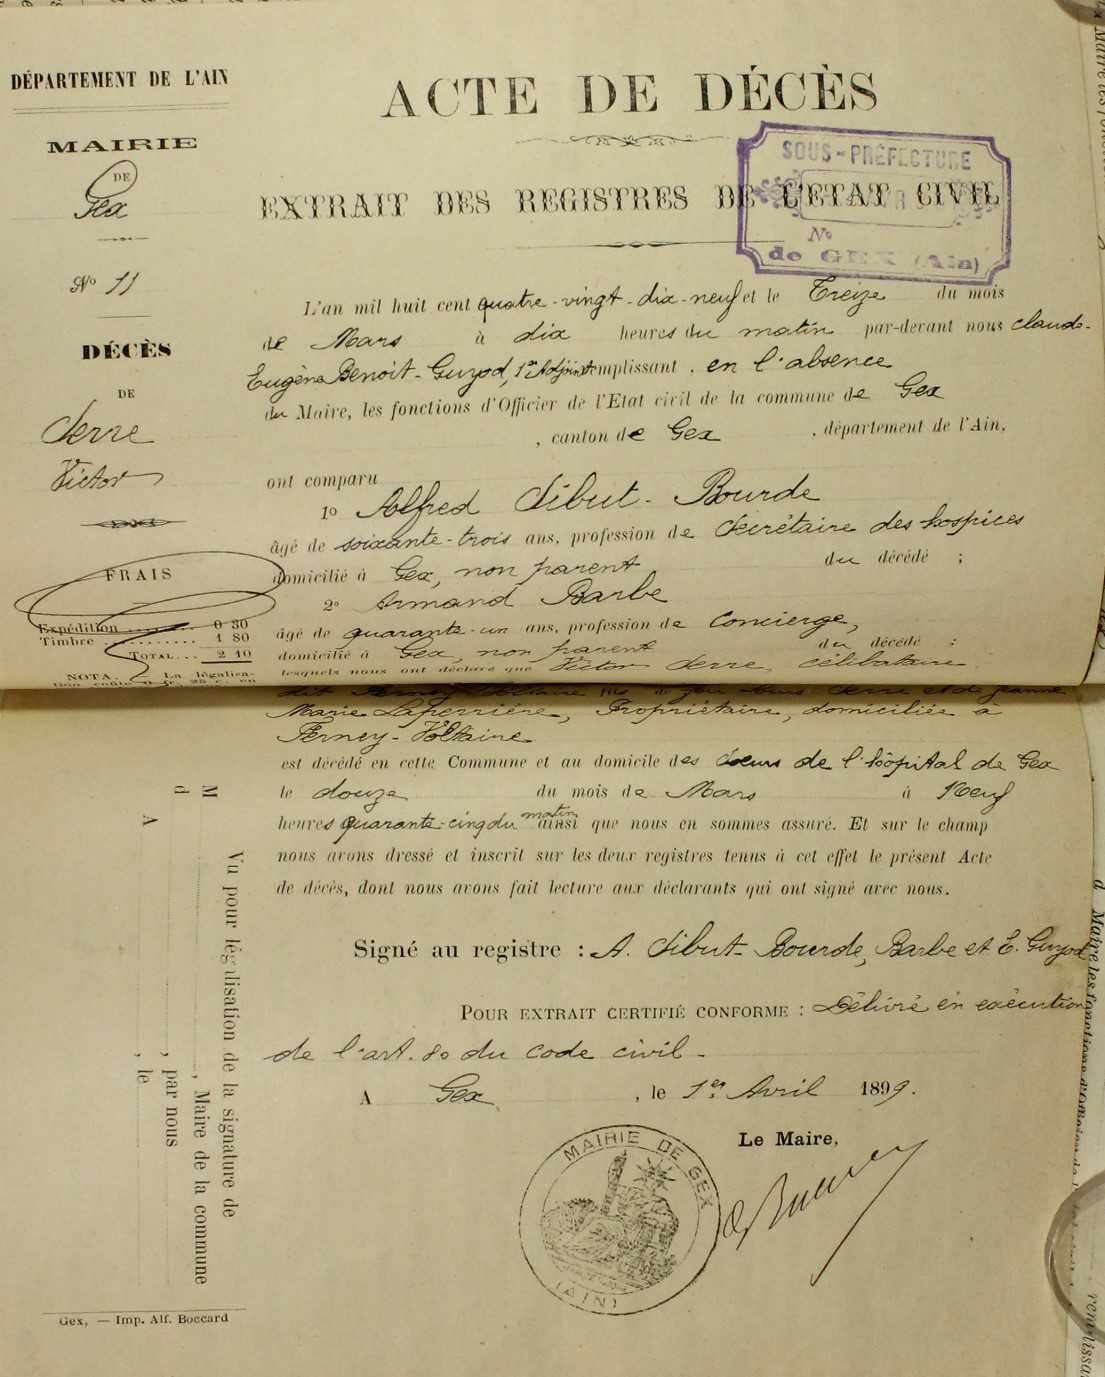 DÉPARTEMENT DE L'AIN
MAIRIE
DE
Gex
Nº 11
DÉCÈS
DE
Serre
Victor
FRAIS
Expédition ........ 0 30
Timbre ........... 1 80
TOTAL... 2 10
NOTA. — La légalisa-
tion coûte 0 fr. 25 c. en
ACTE DE DÉCÈS
EXTRAIT DES REGISTRES DE L'ETAT CIVIL
SOUS-PRÉFECTURE
Nº
de GEX (Ain)
L'an mil huit cent quatre-vingt-dix-neuf et le Treize du mois
de Mars à dix heures du matin par-devant nous Claude-
Eugène Benoit-Guyod, 1er Adjoint remplissant, en l'absence
du Maire, les fonctions d'Officier de l'Etat civil de la commune de Gex
, canton de Gex , département de l'Ain,
ont comparu
1º Alfred Sibut-Bourde
âgé de soixante-trois ans, profession de Secrétaire des hospices
domicilié à Gex, non parent du décédé ;
2º Armand Barbe
âgé de quarante-un ans, profession de Concierge,
domicilié à Gex, non parent du décédé ;
lesquels nous ont déclaré que Victor Serre, célibataire
dit Ferney-Voltaire fils de feu Serre et de Jeanne
Marie Laperrière, Propriétaire, domiciliée à
Ferney-Voltaire
est décédé en cette Commune et au domicile des Sœurs de l'hôpital de Gex
le douze du mois de Mars à Neuf
heures quarante-cinq du matin ainsi que nous en sommes assuré. Et sur le champ
nous avons dressé et inscrit sur les deux registres tenus à cet effet le présent Acte
de décès, dont nous avons fait lecture aux déclarants qui ont signé avec nous.
Signé au registre : A. Sibut-Bourde, Barbe et E. Guyod
POUR EXTRAIT CERTIFIÉ CONFORME : Délivré en exécution
de l'art. 80 du code civil -
A Gex , le 1er Avril 1899.
Le Maire,
MAIRIE DE GEX
(AIN)
Vu pour légalisation de la signature de
M , Maire de la commune
d , par nous
A , le
Gex, — Imp. Alf. Boccard